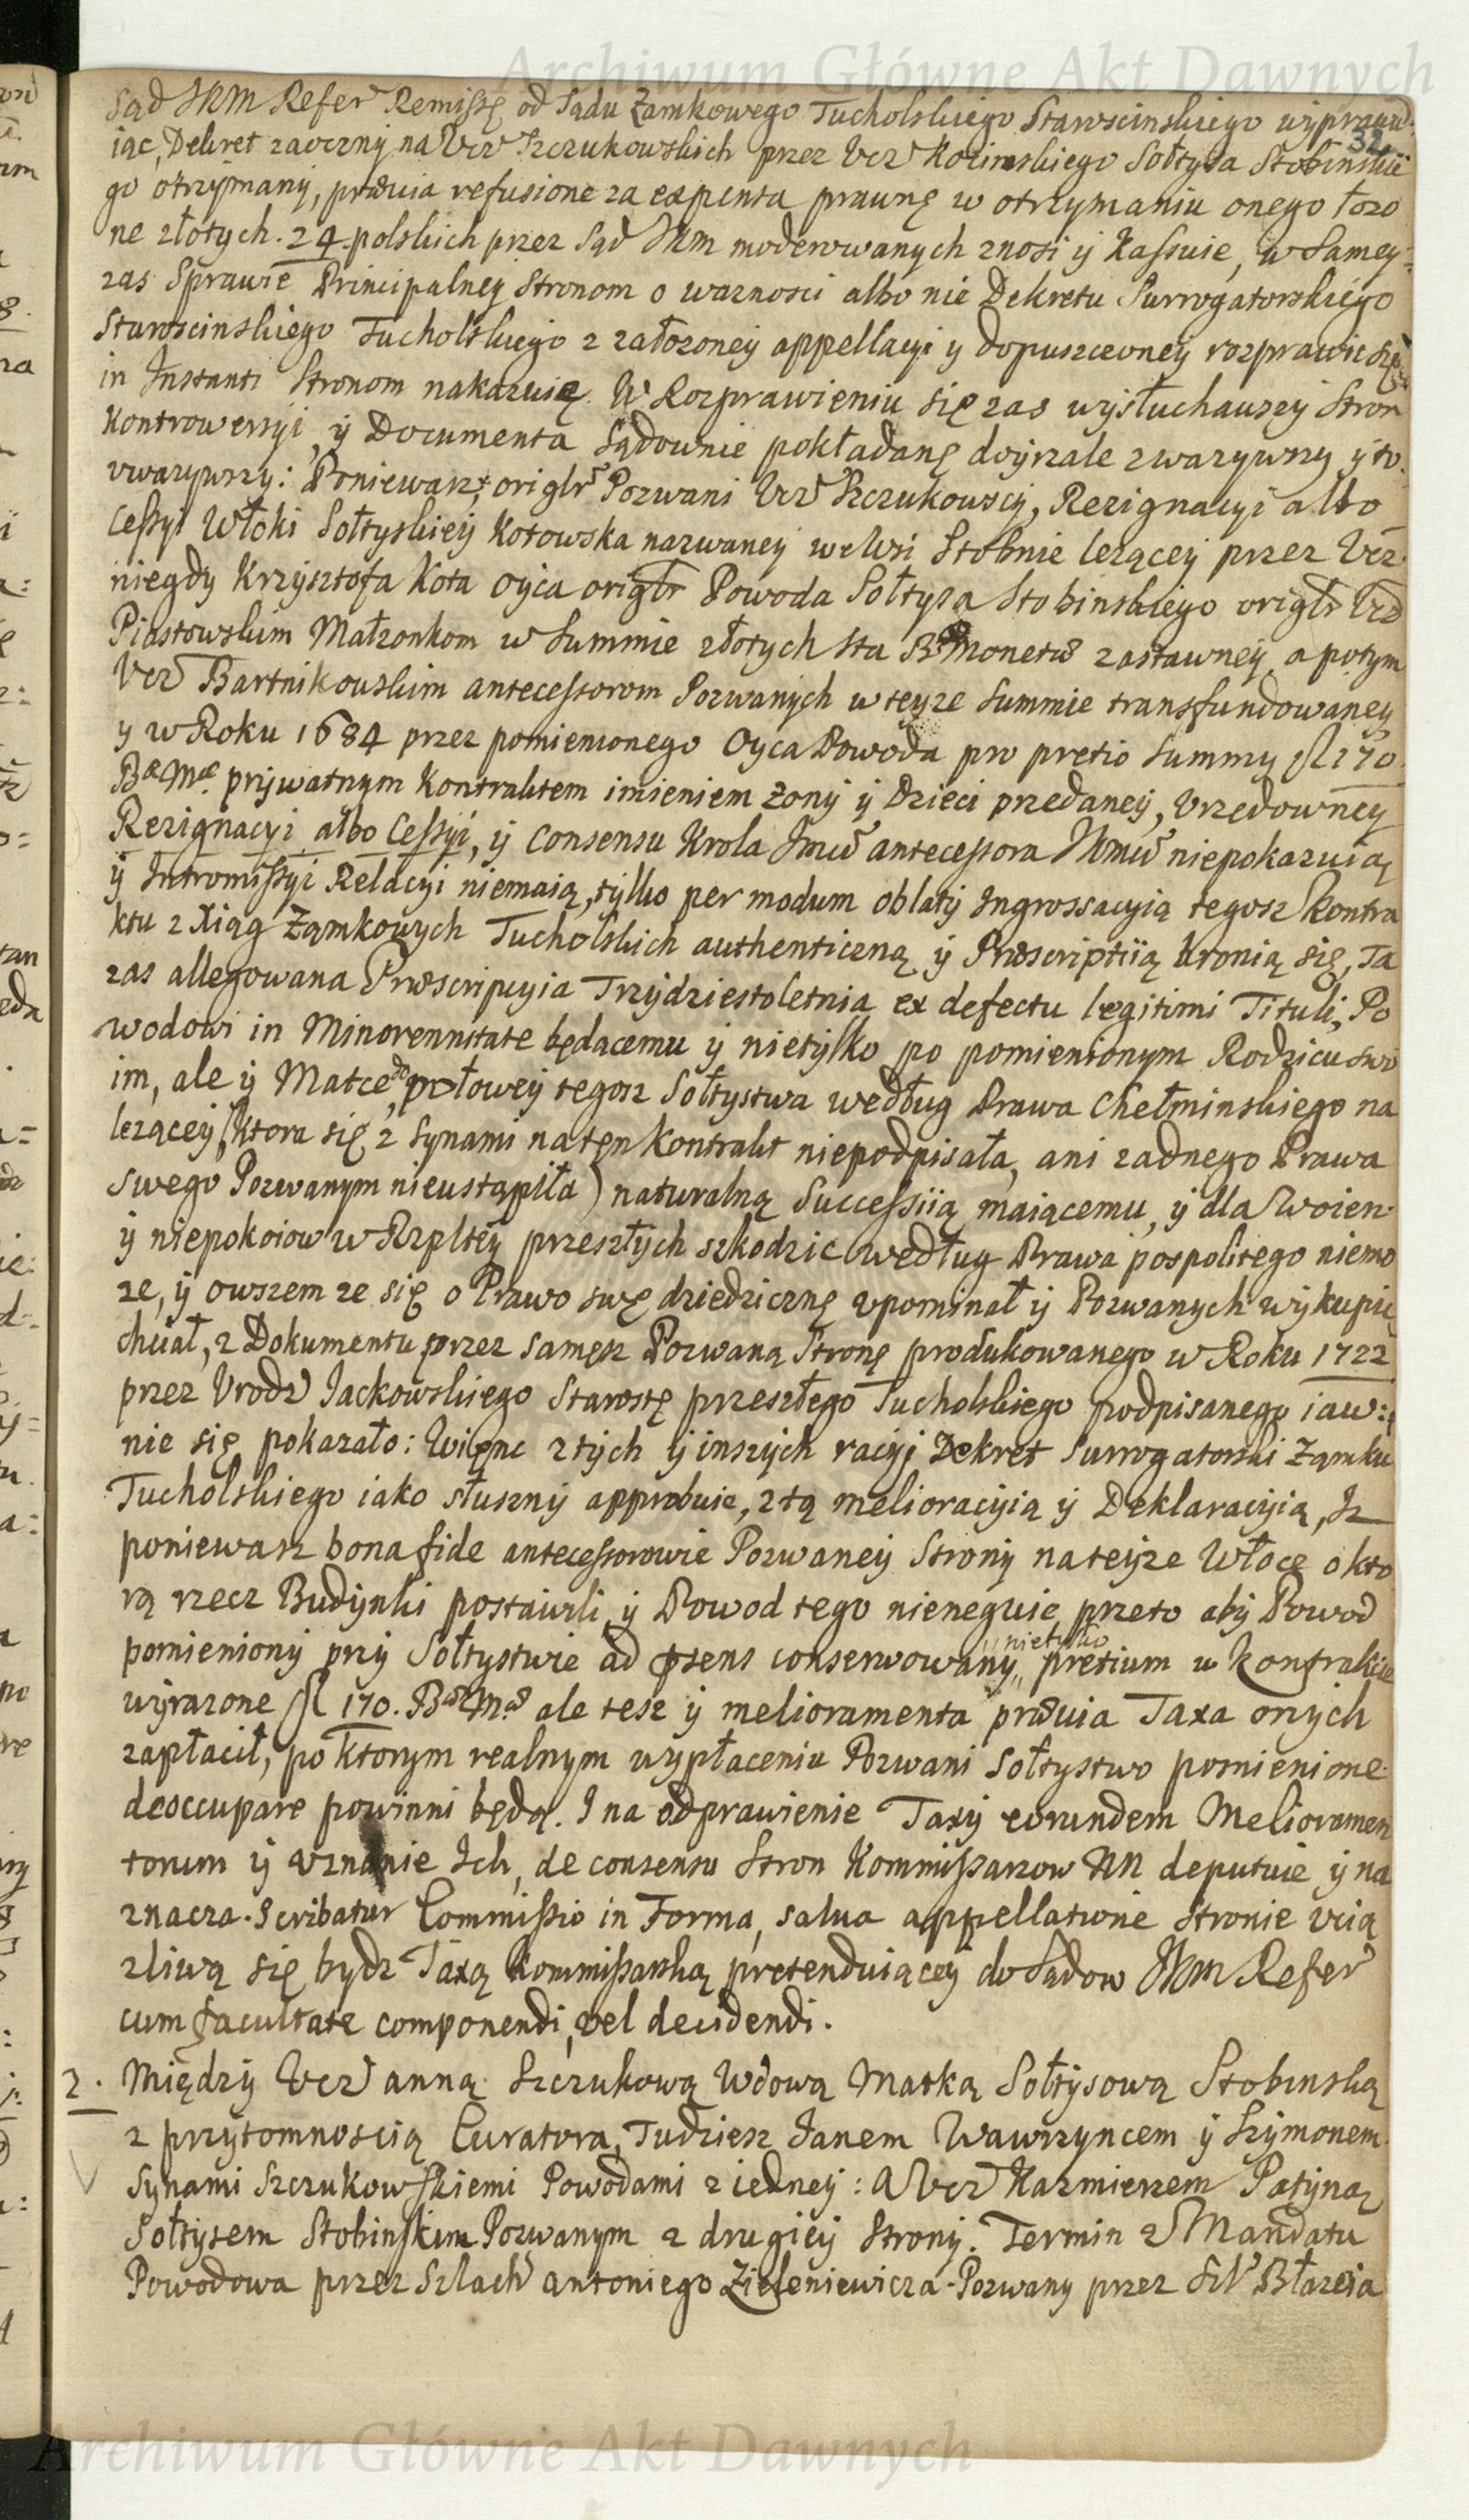 Archiwum Główne Akt Dawnych
Sąd JKM Refer Remissę od Sądu Zamkowego Tucholskiego Starościnskiego wyprawu
32
iąc, Dekret zaoczny na Ucz Szczukowskich przez Ucz Kozinskiego Sołtysa Stobinskie
go otrzymany, prævia refusione za expensa prawnę w otrzymaniu onego łozo
ne złotych. 24. polskich przez Sąd JKM moderowanych znosi y Kassuie, w Samey
zas Sprawie Principalney Stronom o waznosci albo nie Dekretu Surrogatorskiego
Staroscinskiego Tucholskiego z załozoney appellacyi y dopuszczoney rozprawic się
in Instanti Stronom nakazuię. W Rozprawieniu się zas wysłuchawszy Stron
Kontrowersyi, y Documenta Sądownie pokładanę doyrzale zwazywszy y to
uwazywszy: Poniewasz origlr Pozwani Ucz Szczukowscy, Rezignacyi albo
Cessyi Włoki Sołtyskiey Kotowska nazwaney we Wsi Stobnie lezącey przez Ucz
niegdy Krzysztofa Kota Oyca origlr Powoda Sołtysa Stobinskiego origlr Ucz
Piastowskim Małzonkom w Summie złotych sta Bæ Monetæ zastawney, a potym
Ucz Bartnikowskim antecessorom Pozwanych w teyze Summie transfundowaney
y w Roku 1684 przez pomienionego Oyca Powoda pro pretio Summy fl 170.
Bæ Mæ prywatnym Kontraktem imieniem zony y Dzieci przedaney, Urzędowney
Rezignacyi albo Cessyi, y Consensu Krola Jmci antecessora JKmci niepokazuią
y Intromissyi Relacyi niemaią, tylko per modum oblaty Ingrossacyią tegosz Kontra
ktu z Xiąg Zamkowych Tucholskich authenticzną y Præscriptiią bronią się, Ta
zas allegowana Præscripcyia Trzydziestoletnia ex defectu legitimi Tituli, Po
wodowi in Minorennitate będącemu y nietylko po pomienionym Rodzicu swo
im, ale y Matce do połowey tegosz Sołtystwa według Prawa Chełminskiego na
lezącey (Ktora się z Synami na ten Kontrakt niepodpisała, ani zadnego Prawa
swego Pozwanym nieustąpiła) naturalną Successiią maiącemu, y dla Woien
y niepokoiow w Rzpltey przeszłych szkodzic według Prawa pospolitego niemo
ze, y owszem ze się o Prawo swę dziedzicznę upominał y Pozwanych wykupic
chciał, z Dokumentu przez samęsz Pozwaną Stronę produkowanego w Roku 1722
przez Urodz Jackowskiego Starostę przeszłego Tucholskiego podpisanego iaw:
nie się pokazało: Więnc z tych y inszych racyi Dekret Surrogatorski Zamku
Tucholskiego iako słuszny approbuie, z tą melioracyią y Deklaracyią, Iz
poniewasz bona fide antecessorowie Pozwaney Strony na teyze Włoce o kto
rą rzecz Budynki postawili, y Powod tego nieneguie, przeto aby Powod
pomieniony przy Sołtystwie ad præsens conserwowany, nietylko pretium w Kontrakcie
wyrazone fl 170. Bæ Mæ ale tesz y melioramenta prævia Taxa onych
zapłacił, po ktorym realnym wypłaceniu Pozwani Sołtystwo pomienione
deoccupare powinni będą. I na odprawienie Taxy eorundem Melioramen
torum y uznanie Ich, de consensu Stron Kommissarzow NN deputuie y na
znacza. Scribatur Commissio in Forma, salva appellatione Stronie ucią
zliwą się bydz Taxą Kommissarską prætenduiącey do Sądow JKM Refer
cum facultate componendi, vel decidendi.
2. Między Ucz Anną Szczukową Wdową Matką Sołtysową Stobinską
z przytomnoscią Curatora, Tudziesz Janem Wawrzyncem y Szymonem
Synami Szczukowskiemi Powodami z iedney: A Ucz Kazmierzem Patyną
Sołtysem Stobinskim Pozwanym z drugiey Strony. Termin z Mandatu
Powodowa przez Szlach Antoniego Zieleniewicza. Pozwany przez Szl Błazeia
Archiwum Główne Akt Dawnych